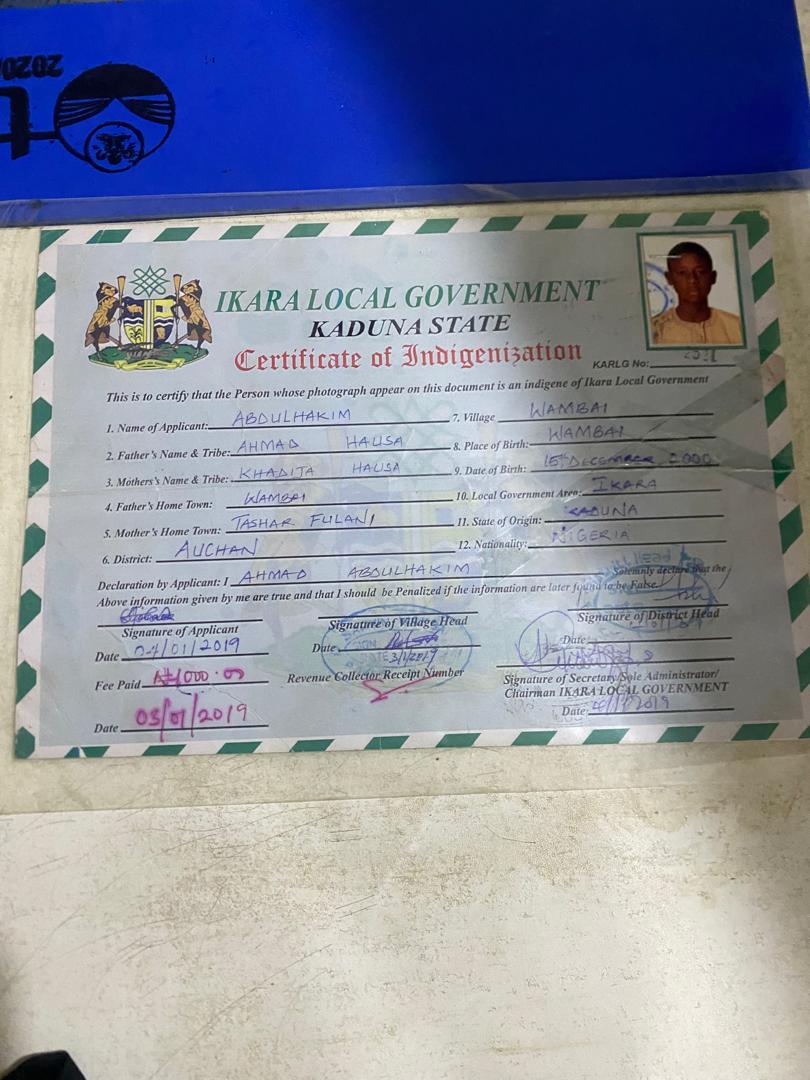 2020
IKARA LOCAL GOVERNMENT
KADUNA STATE
Certificate of Indigenization
KARLG No:
This is to certify that the Person whose photograph appear on this document is an indigene of Ikara Local Government
1. Name of Applicant: ABDULHAKIM
2. Father's Name & Tribe: AHMAD HAUSA
3. Mothers's Name & Tribe: KHADIJA HAUSA
4. Father's Home Town: WAMBAI
5. Mother's Home Town: TASHAR FULANI
6. District: AUCHAN
7. Village WAMBAI
8. Place of Birth: WAMBAI
9. Date of Birth: 15th DECEMBER 2000
10. Local Government Area: IKARA
11. State of Origin: KADUNA
12. Nationality: NIGERIA
Declaration by Applicant: I AHMAD ABDULHAKIM Solemnly declare that the
Above information given by me are true and that I should be Penalized if the information are later found to be False.
Signature of Applicant
Date 04/01/2019
Fee Paid ₦1000.00
Date 03/01/2019
Signature of Village Head
Date 3/1/2019
Revenue Collector Receipt Number
Signature of District Head
Date
Signature of Secretary/Sole Administrator/
Chairman IKARA LOCAL GOVERNMENT
Date